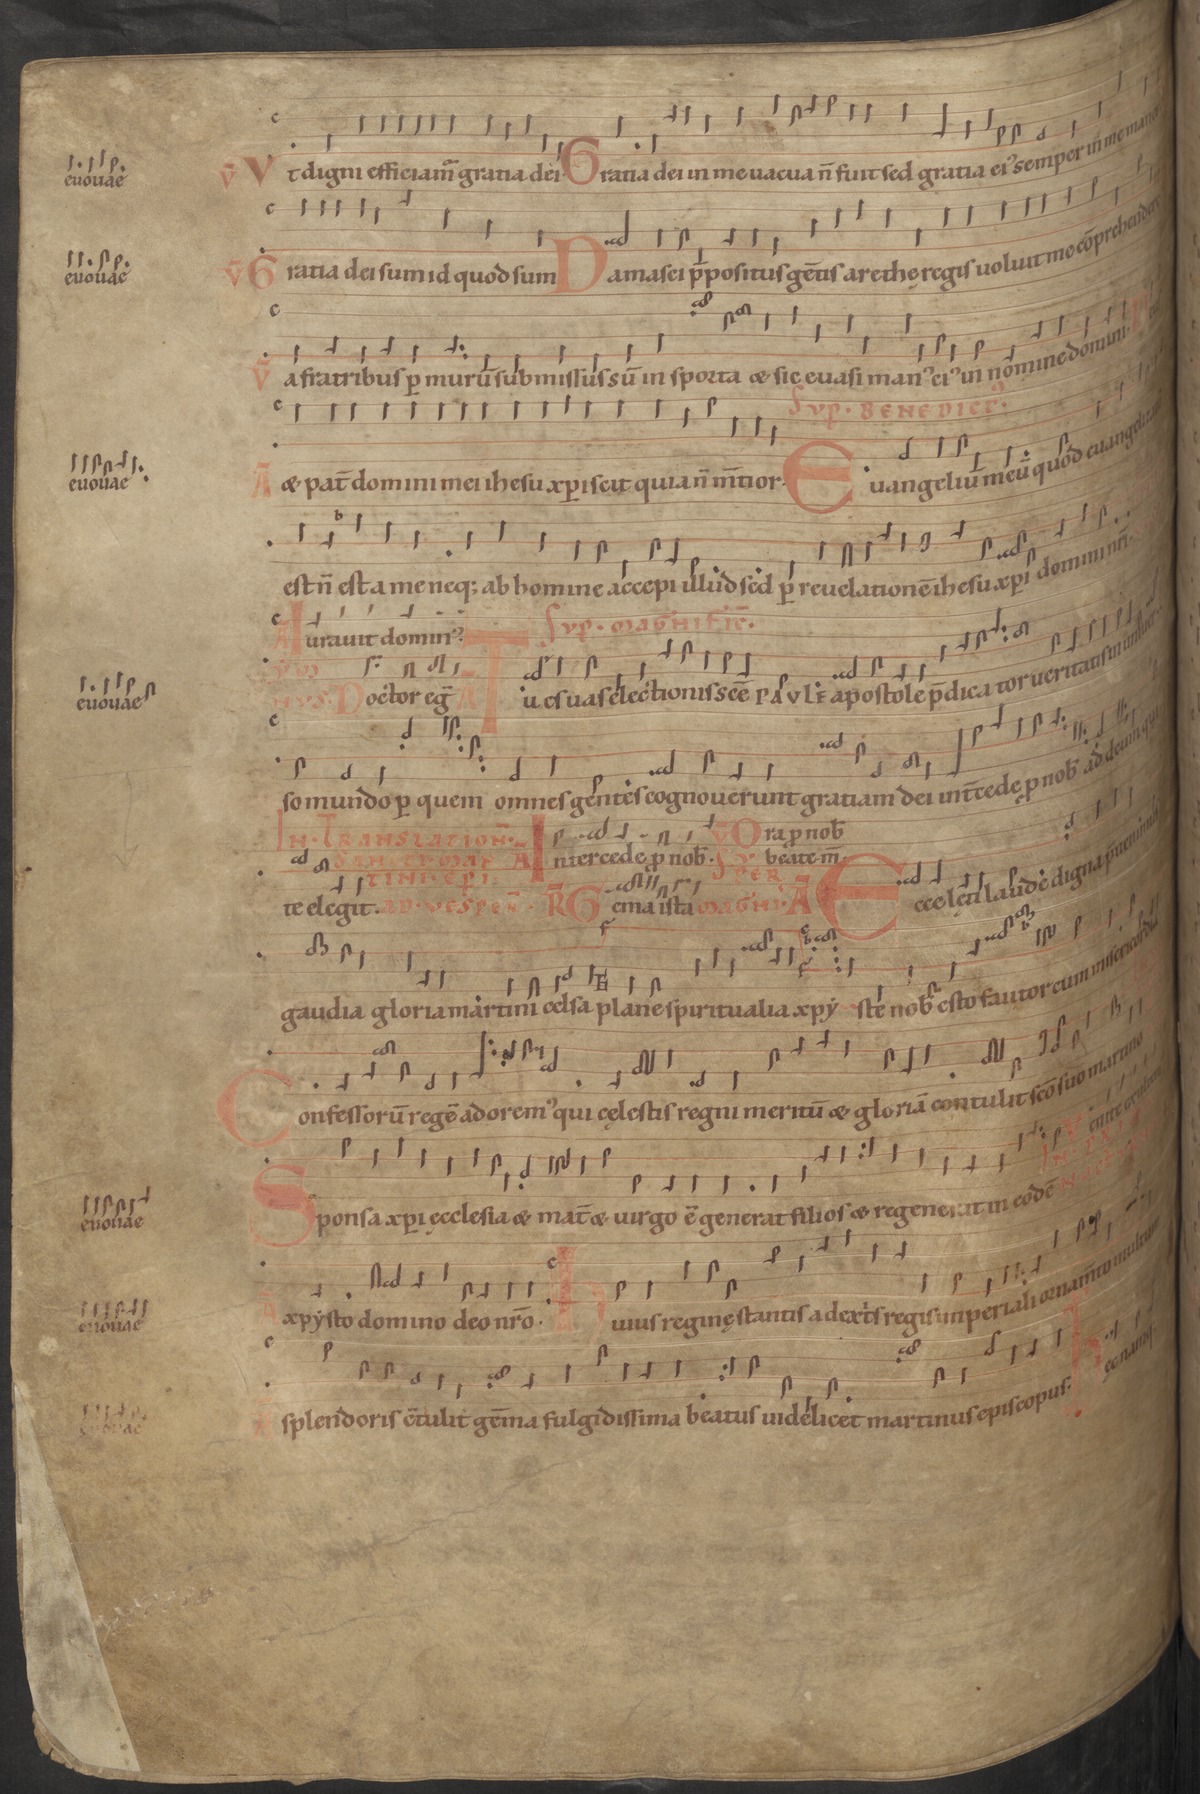 euouae V̄ Vt digni efficiam̄ gratia dei Gratia dei in me uacua n̄ fuit sed gratia ei' semper in me manet
euouae V̄ Gratia dei sum id quod sum Damasci p̄positus gētis arethę regis uoluit me cōprehendere
V̄ a fratribus p murū submissus sū in sporta & sic euasi man' ei' in nomine domini.
Sup. BENEDICT̄'
euouae Ā & pat̄ domini mei ihesu xpi scit quia n̄ m̄tior. Euangeliū meū quod euangelizatū
est n̄ est a me neq; ab homine accepi illud sed p reuelationē ihesu xpi domini nr̄i.
Iurauit domin' Sup. MAGNIFIC̄.
euouae Doctor eḡ Ā Tu es uas electionis scē PAVLE apostole p̄dicator ueritatis in uniuer
so mundo p quem omnes gentes cognouerunt gratiam dei int̄cede p nob̄ ad deum qui
IN TRANSLATION̄. Ā Intercede p nob̄. V̄ Ora p nob̄
SANCTI MAR SVPER beate m̄.
TINI EPI.
te elegit. AD VESPER̄. R̄ Gema ista MAGNI. Ā Ecce lētū laude digna
gaudia gloria martini celsa plane spiritualia xpy̅ ste nob̄ esto fautor cum misericordia
Confessorū regē adorem' qui celestis regni meritū & gloriā contulit scō suo martino
euouae Sponsa xpi ecclesia & mat̄ & uirgo ē generat filios & regenerat in eodē
euouae Ā xpy̅sto domino deo nr̄o. Huius reginę stantis a dext̄s regis imperiali ornam̄to multum
euouae Ā splendoris c̄tulit gēma fulgidissima beatus uidelicet martinus episcopus. Hec namq;